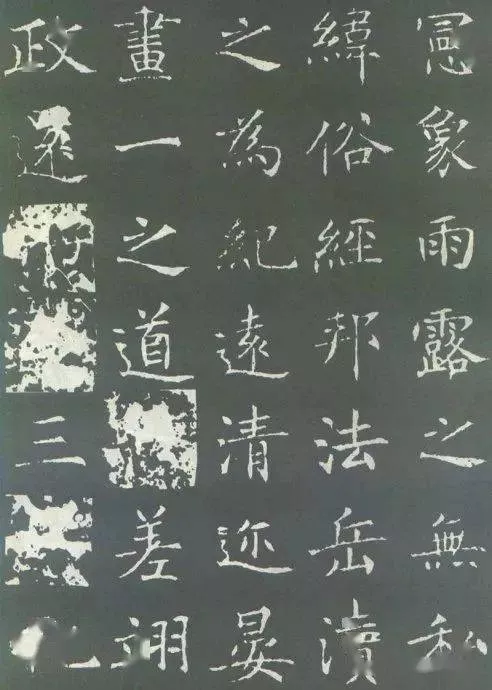 憲象雨露之無私
緯俗經邦法岳瀆
之為紀遠清迩晏
畫一之道差翊
政三